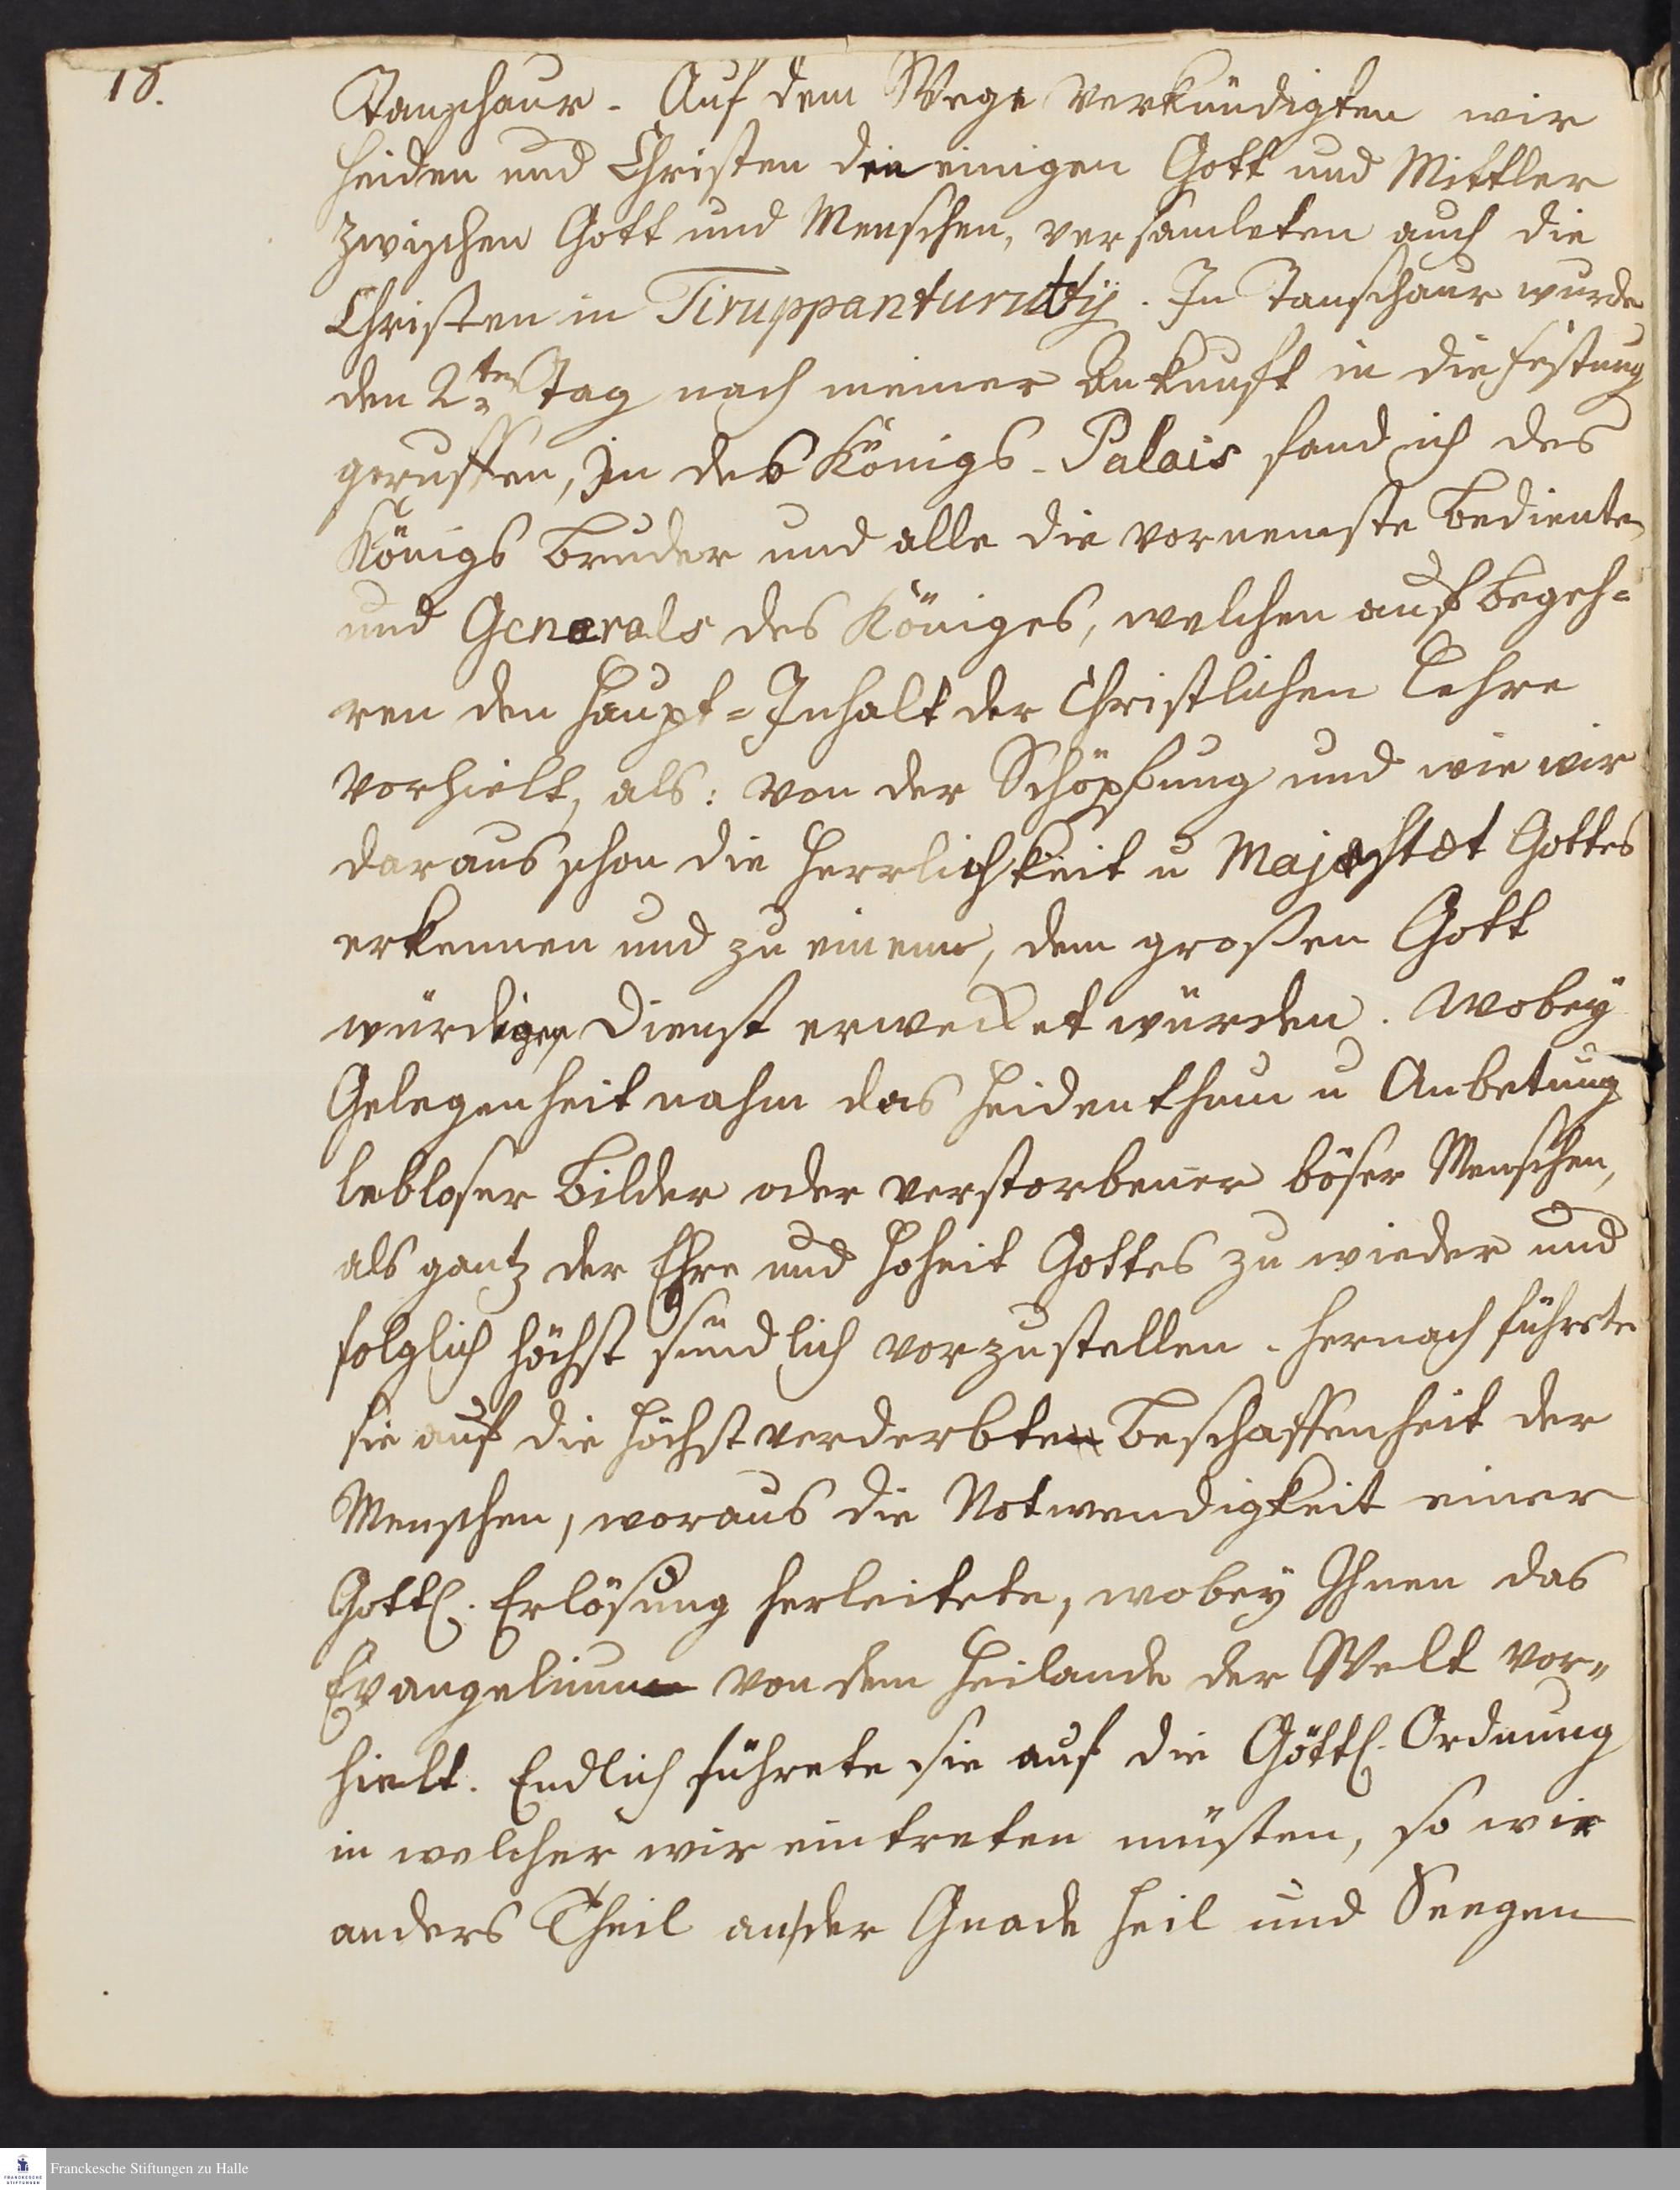 18.
Tanschaur. Auf dem Wege verkündigten wir
Heiden und Christen den einigen Gott und Mittler
zwischen Gott und Menschen, versamleten auch die
Christen in Tiruppanturutty. In Tanschaur wurde
den 2ten Tag nach meiner Ankunft in die Festung
geruffen, In des Königs-Palais fand ich des
Königs Bruder und alle die vornemste Bediente
und Generals des Königes, welchen auf Begeh=
ren den Haupt=Inhalt der Christlichen Lehre
vorhielt, als: von der Schöpfung und wie wir
daraus schon die Herrlichkeit u Majestæt Gottes
erkennen und zu einem, dem großen Gott
würdigen Dienst erwecket würden. Wobey
Gelegenheit nahm das Heidenthum u Anbetung
lebloser Bilder oder verstorbener böser Menschen,
als gantz der Ehre und Hoheit Gottes zu wieder und
folglich höchst sündlich vorzustellen. Hernach führete
sie auf die höchst verderbte Beschaffenheit der
Menschen, woraus die Notwendigkeit einer
Göttl. Erlösung herleitete, wobey Ihnen das
Evangelium von dem Heilande der Welt vor=
hielt. Endlich führete sie auf die Göttl. Ordnung
in welcher wir eintreten müsten, so wir
anders Theil an der Gnade Heil und Seegen
Franckesche Stiftungen zu Halle
FRANCKESCHE
STIFTUNGEN